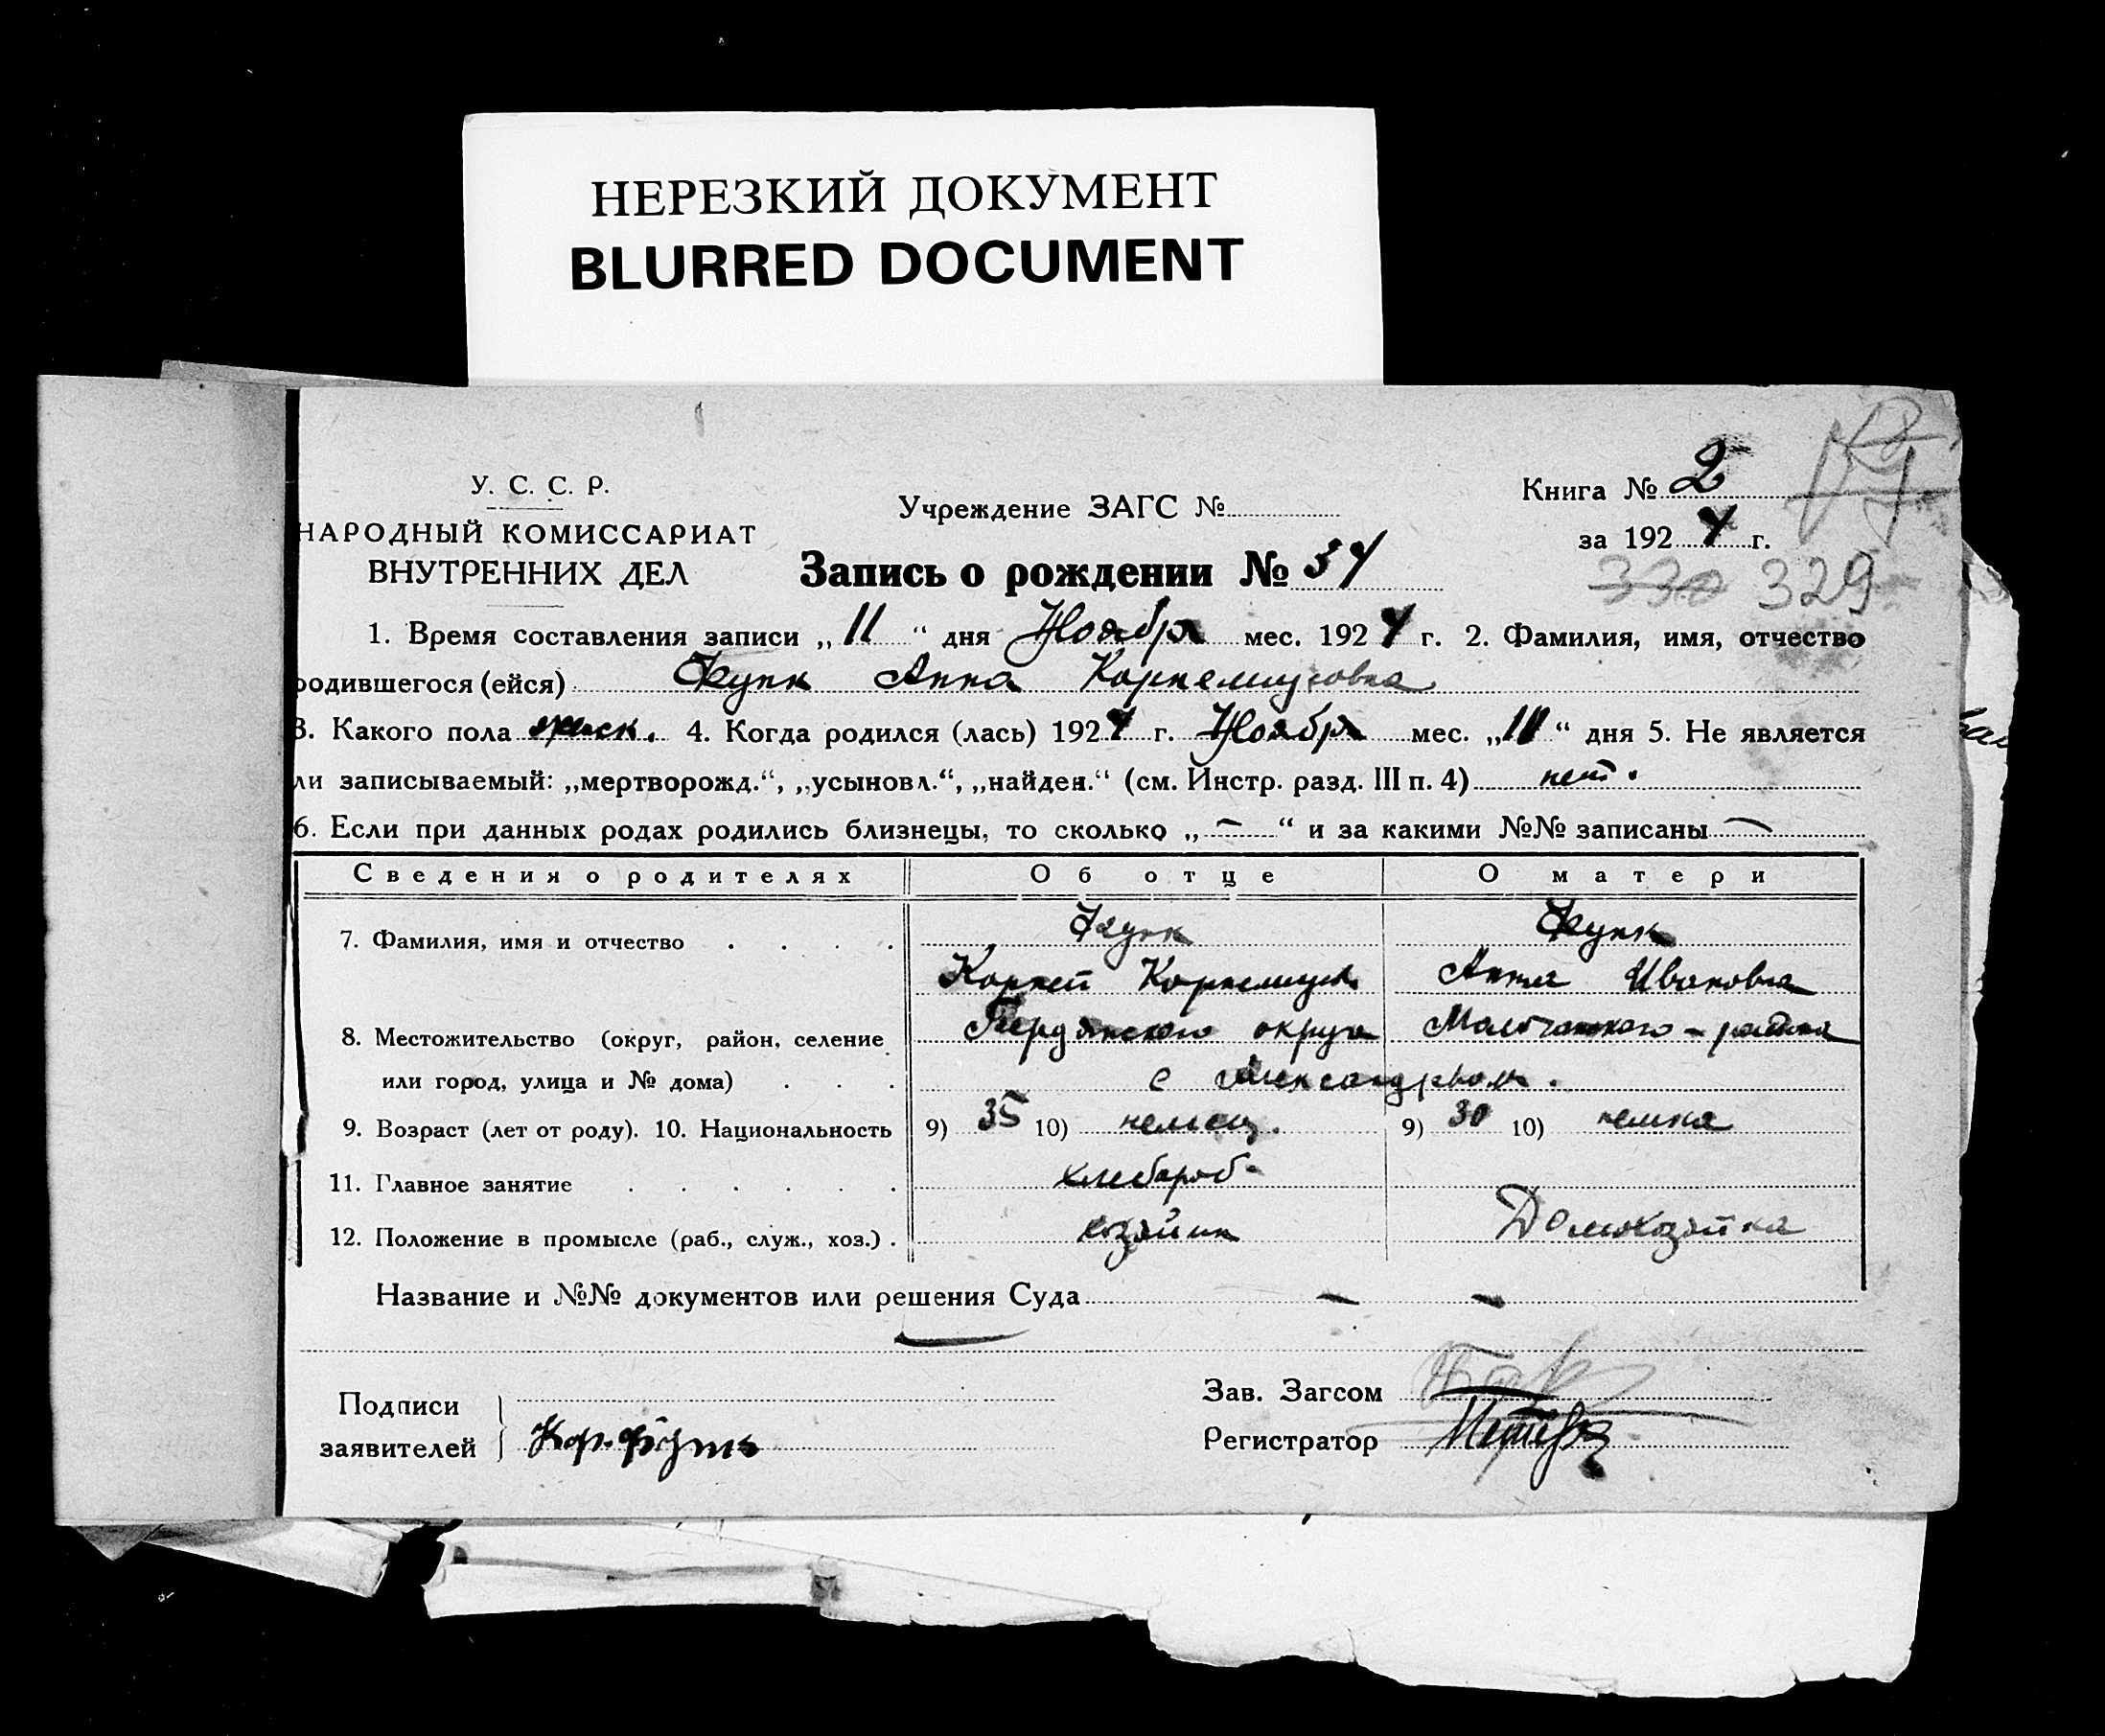 НЕРЕЗКИЙ ДОКУМЕНТ
BLURRED DOCUMENT
У. С. С. Р.
НАРОДНЫЙ КОМИССАРИАТ
ВНУТРЕННИХ ДЕЛ
Учреждение ЗАГС №
Запись о рождении № 34
Книга № 2
за 1924 г.
330 329
1. Время составления записи „11“ дня Ноября мес. 1924 г. 2. Фамилия, имя, отчество
родившегося (ейся) Функ Анна Корнелиусовна
3. Какого пола женск. 4. Когда родился (лась) 1924 г. Ноября мес. „10“ дня 5. Не является
ли записываемый: „мертворожд.“, „усыновл.“, „найден.“ (см. Инстр. разд. III п. 4) нет.
6. Если при данных родах родились близнецы, то сколько „–“ и за какими №№ записаны –
Сведения о родителях Об отце О матери
7. Фамилия, имя и отчество . . . . Функ Функ
Корней Корнелиус. Анна Ивановна
8. Местожительство (округ, район, селение Бердянского округа Молочанского - района
или город, улица и № дома) . . . с Александркрон.
9. Возраст (лет от роду). 10. Национальность 9) 35 10) немец. 9) 30 10) немка
11. Главное занятие . . . . . . хлебороб.
12. Положение в промысле (раб., служ., хоз.) . хозяин Домохозяйка
Название и №№ документов или решения Суда – –
Подписи
заявителей Кор. Функ
Зав. Загсом
Регистратор